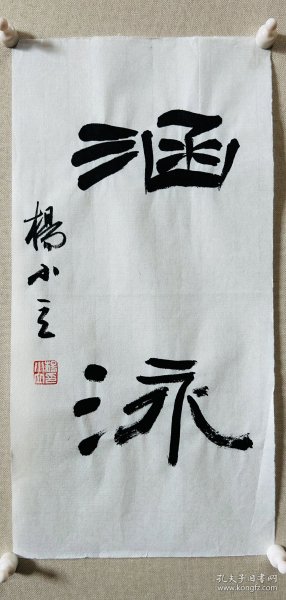 涵泳
楊小立
孔夫子旧书网
www.kongfz.com